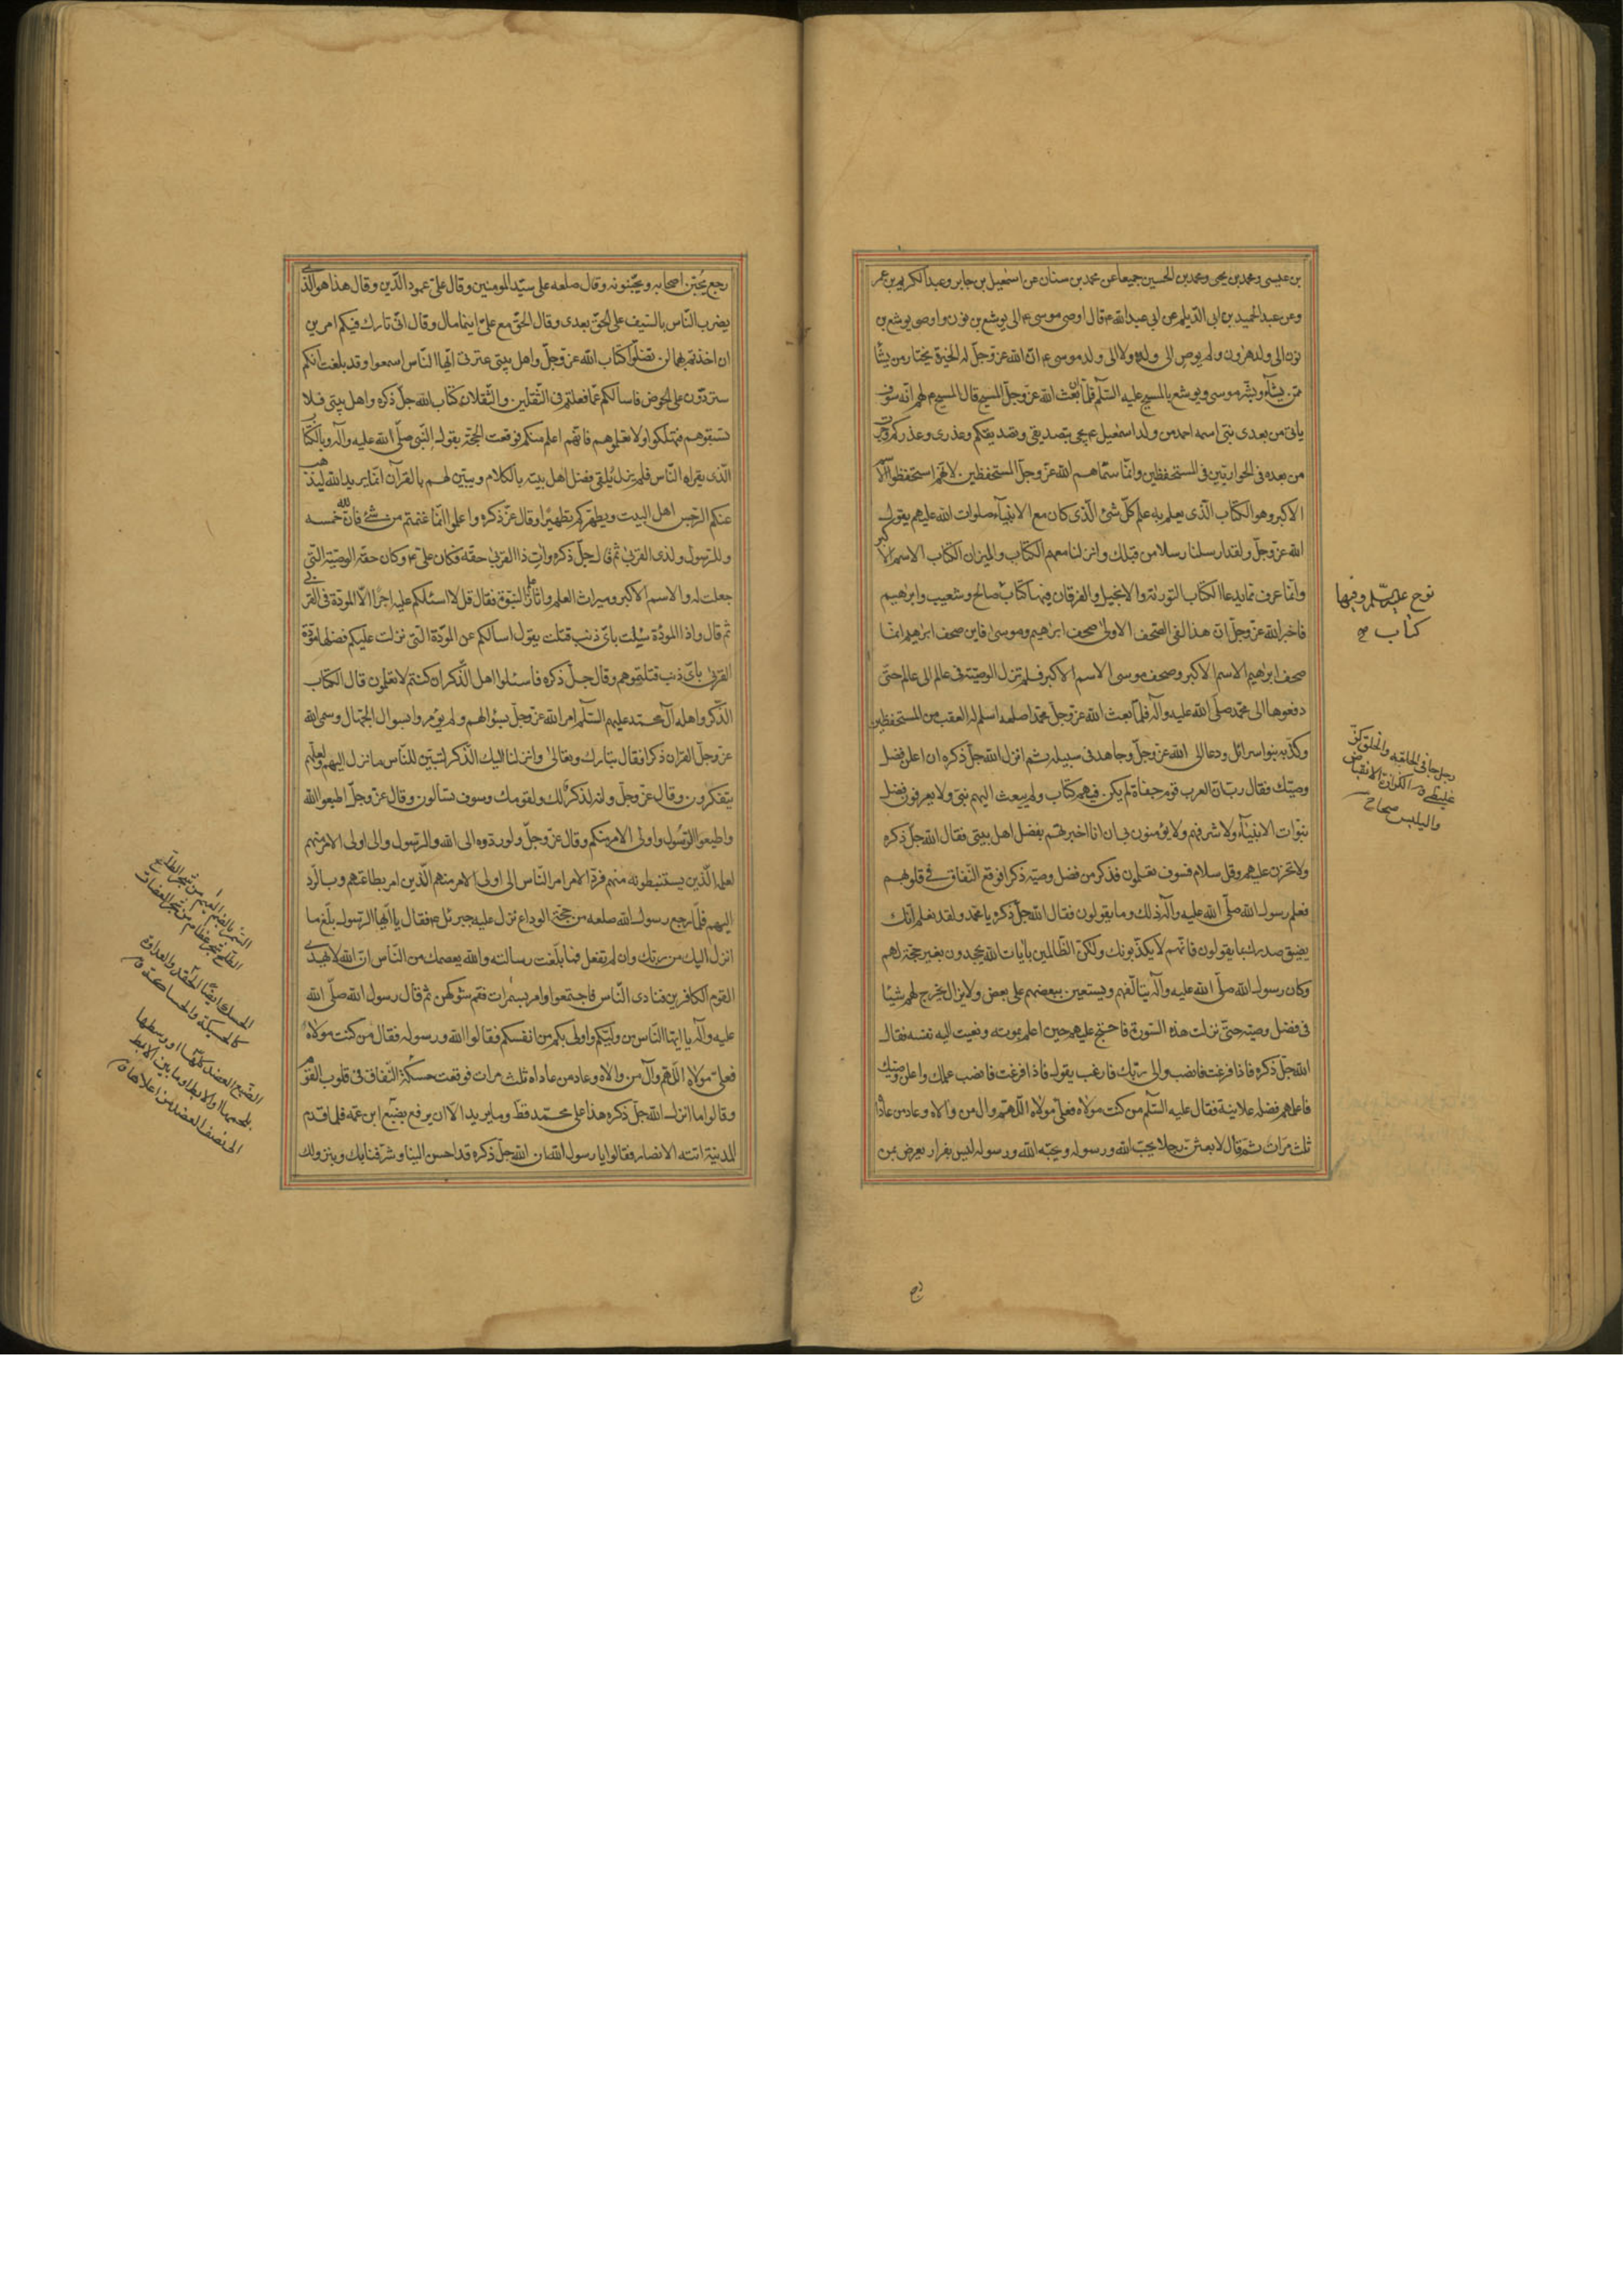 بن عيسى ومحمد بن يحيى ومحمد بن الحسين جميعا عن محمد بن سنان عن اسمعيل بن جابر وعبد الكريم بن عمر
وعن عبد الحميد بن ابى الديلم عن ابى عبد الله ع قال اوصى موسى ع الى يوشع بن نون واوصى يوشع بن
نون الى ولد هرون ولم يوص الى ولده ولا الى ولد موسى ع انّ الله عزّ وجلّ له الخيرة يختار من يشآء
ممّن يشآء وبشّر موسى ويوشع بالمسيح عليه السّلم فلمّا ان بعث الله عزّ وجلّ المسيح قال المسيح ع لهم انّه سوف
ياتى من بعدى نبىّ اسمه احمد من ولد اسمعيل ع يجئ بتصديقى وتصديقكم وعذرى وعذركم وجرت
من بعده فى الحواريّين فى المستحفظين وانّما سمّاهم الله عزّ وجلّ المستحفظين لانّهم استحفظوا الاسم
الاكبر وهو الكتاب الّذى يعلم به علم كلّ شئ الّذى كان مع الانبيآء صلوات الله عليهم يقول
الله عزّ وجلّ ولقد ارسلنا رسلا من قبلك وانزلنا معهم الكتاب والميزان الكتاب الاسم الاكبر
وانّما عرف ممّا يدعا الكتاب التورية والانجيل والفرقان فيها كتاب صالح وشعيب وابرهيم
فاخبر الله عزّ وجلّ انّ هذا لفى الصّحف الاولى صحف ابرهيم وموسى فاين صحف ابرهيم انّما
صحف ابرهيم الاسم الاكبر وصحف موسى الاسم الاكبر فلم تزل الوصيّة فى عالم الى عالم حتّى
دفعوها الى محمّد صلّى الله عليه وآله فلمّا بعث الله عزّ وجلّ محمّدا صلعه اسلم له العقب من المستحفظين
وكذّبه بنو اسرائل ودعا الى الله عزّ وجلّ وجاهد فى سبيله ثم انزل الله جلّ ذكره ان اعلن فضل
وصيّك فقال ربّ انّ العرب قوم جفاة لم يكن فيهم كتاب ولم يبعث اليهم نبىّ ولا يعرفون فضل
نبوّات الانبيآء ولا شرفهم ولا يؤمنون بى ان انا اخبرتهم بفضل اهل بيتى فقال الله جلّ ذكره
ولا تحزن عليهم وقل سلام فسوف تعلمون فذكر من فضل وصيّه ذكرا فوقع النّفاق فى قلوبهم
فعلم رسول الله صلّى الله عليه وآله ذلك وما يقولون فقال الله جلّ ذكره يا محمّد ولقد نعلم انّك
يضيق صدرك بما يقولون فانّهم لا يكذّبونك ولكنّ الظّالمين بآيات الله يجحدون بغير حجّة لهم
وكان رسول الله صلّى الله عليه وآله يتألّفهم ويستعين ببعضهم على بعض ولا يزال يخرج لهم شيئا
فى فضل وصيّه حتّى نزلت هذه السّورة فاحتجّ عليهم حين اعلم بموته ونعيت اليه نفسه فقال
الله جلّ ذكره فاذا فرغت فانصب والى ربّك فارغب يقول فاذا فرغت فانصب علمك واعلن وصيّك
فاعلمهم فضله علانية فقال عليه السّلم من كنت مولاه فعلىّ مولاه اللّهمّ وال من والاه وعاد من عاداه
ثلث مرات ثم قال لابعثنّ رجلا يحبّ الله ورسوله ويحبّه الله ورسوله ليس بفرار يعرض بمن
نوح
كتاب
والخلق
غليظ
الانقباض
واليبس صحاح
رجع يجبّن اصحابه ويجبّنونه وقال صلعه علىّ سيّد المومنين وقال علىّ عمود الدّين وقال هذا هو الّذى
يضرب النّاس بالسّيف على الحقّ بعدى وقال الحقّ مع علىّ اينما مال وقال انّى تارك فيكم امرين
ان اخذتم بهما لن تضلّوا كتاب الله عزّ وجلّ واهل بيتى عترتى ايّها النّاس اسمعوا وقد بلّغت انّكم
ستردّون علىّ الحوض فاسألكم عمّا فعلتم فى الثّقلين والثّقلان كتاب الله جلّ ذكره واهل بيتى فلا
تسبقوهم فتهلكوا ولا تعلّموهم فانّهم اعلم منكم فوقعت الحجّة بقول النّبى صلّى الله عليه وآله وبالكتاب
الّذى يقراه النّاس فلم يزل يلقى فضل اهل بيته بالكلام ويبيّن لهم بالقرآن انّما يريد الله ليذهب
عنكم الرّجس اهل البيت ويطهّركم تطهيرا وقال عزّ ذكره واعلموا انّما غنمتم من شئ فانّ لله خمسه
وللرّسول ولذى القربى ثم قال جلّ ذكره وآت ذا القربى حقّه فكان علىّ ع وكان حقّه الوصيّة الّتى
جعلت له والاسم الاكبر وميراث العلم واثار علم النبوّة فقال قل لا اسئلكم عليه اجرا الّا المودّة فى القربى
ثم قال واذا الموؤدة سئلت باىّ ذنب قتلت يقول اسألكم عن المودّة الّتى نزلت عليكم فضلها مودّة
القربى باىّ ذنب قتلتموهم وقال جلّ ذكره فاسئلوا اهل الذّكر ان كنتم لا تعلمون قال الكتاب
الذّكر واهله آل محمّد عليهم السّلم امر الله عزّ وجلّ بسؤالهم ولم يؤمروا بسوال الجهّال وسمى الله
عزّ وجلّ القران ذكرا فقال تبارك وتعالى وانزلنا اليك الذّكر لتبيّن للنّاس ما نزل اليهم ولعلّهم
يتفكرون وقال عزّ وجلّ وانه لذكر لك ولقومك وسوف تسألون وقال عزّ وجلّ اطيعوا الله
واطيعوا الرّسول واولى الامر منكم وقال عزّ وجلّ ولو ردّوه الى الله والى الرّسول والى اولى الامر منهم
لعلمه الّذين يستنبطونه منهم فردّ الامر امر النّاس الى اولى الامر منهم الّذين امر بطاعتهم وبالرّد
اليهم فلمّا رجع رسول الله صلعه من حجّة الوداع نزل عليه جبرئل ع فقال يا ايّها الرّسول بلّغ ما
انزل اليك من ربّك وان لم تفعل فما بلّغت رسالته والله يعصمك من النّاس انّ الله لا يهدى
القوم الكافرين فنادى النّاس فاجتمعوا وامر بسمرات فقمّ شوكهنّ ثم قال رسول الله صلّى الله
عليه وآله يا ايّها النّاس من وليّكم واولى بكم من انفسكم فقالوا الله ورسوله فقال من كنت مولاه
فعلىّ مولاه اللّهمّ وال من والاه وعاد من عاداه ثلث مرات فوقعت حسكة النّفاق فى قلوب القوم
وقالوا ما انزل الله جلّ ذكره هذا على محمّد قط وما يريد الّا ان يرفع بضبع ابن عمّه فلما قدم
المدينة اتته الانصار فقالوا يا رسول الله ان الله جلّ ذكره قد احسن الينا وشرّفنا بك وبنزولك
السّمر بالضّم من شجر الطّلح
الطّلح شجر عظام من شجر العضاه
الحسك ايضا الحقد والعداوة
كالحسيكة والحساكة ق
الضّبع العضد كلّها او وسطها
بلحمها او الابط او ما بين الابط
الى نصف العضد من اعلاها ق